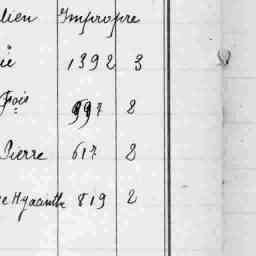 lien Impropre
ie 1392 3
Fois 997 2
Pierre 617 2
e Hyacinthe 819 2